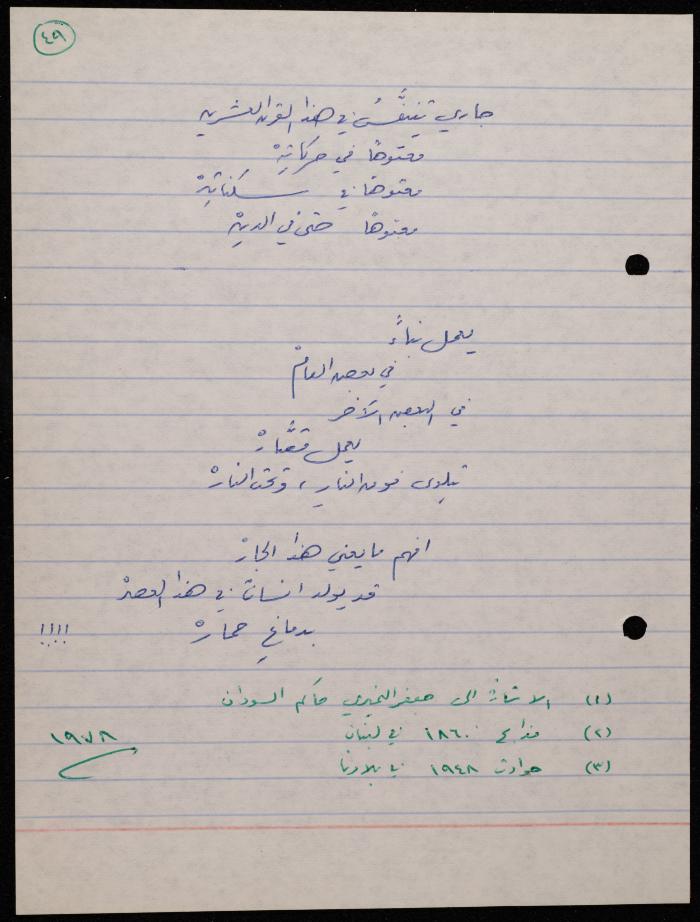 ٤٩
جاري تيتنفَّسُ في هذا القرن العشرين
معتوهًا في حركاتِهْ
معتوهًا في سكناتِهْ
معتوهًا حتى في الدينْ
يعمل بناءً
في بعض العامْ
في البعض الآخر
يعمل قصَّارْ
يتلوى فوق النارِ ، وتحت النارْ
افهم ما يعني هذا الجارْ
قد يولد انسانٌ في هذا العصرْ
بدماغِ حمارْ !!!!
(١) الاشارة الى جعفر النميري حاكم السودان
(٢) مذابح ١٨٦٠ في لبنان
(٣) حوادث ١٩٤٨ في بلادنا
١٩٧٨